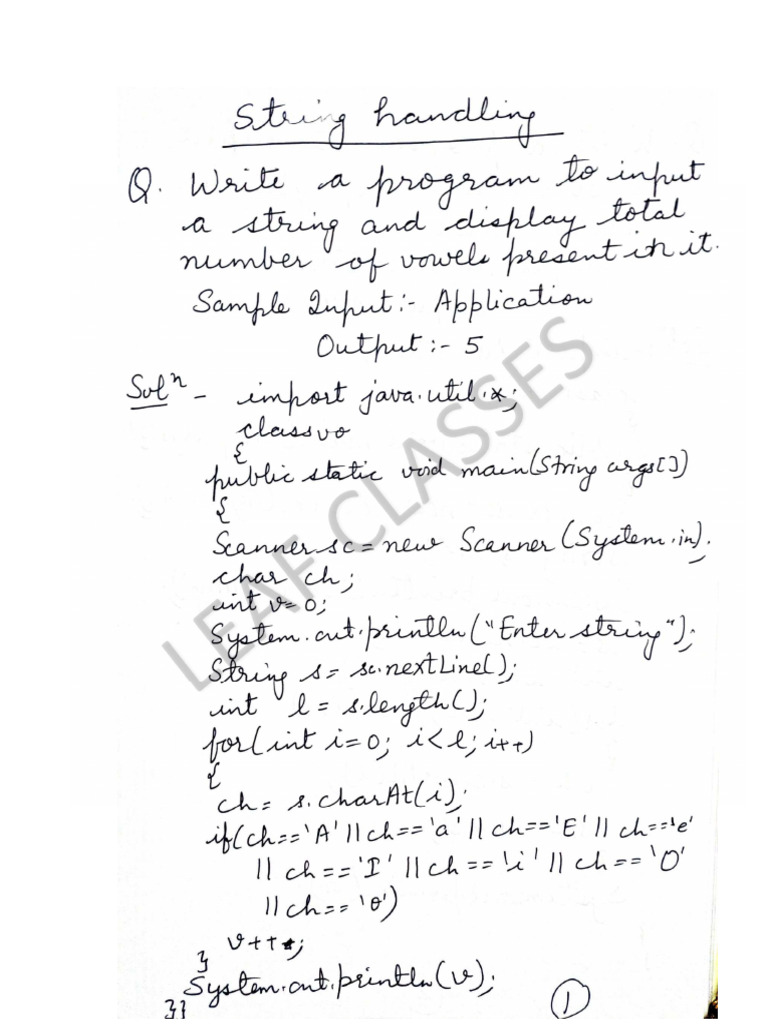 String handling
Q. Write a program to input
a string and display total
number of vowels present in it.
Sample Input:- Application
Output:- 5
Solⁿ - import java.util.*;
class vo
{
public static void main(String args[])
{
Scanner sc = new Scanner (System.in).;
char ch;
int v=0;
System.out.println("Enter string");
String s= sc.nextLine();
int l = s.length();
for(int i=0; i<l; i++)
{
ch= s.charAt(i);
if(ch=='A' || ch=='a' || ch=='E' || ch=='e'
|| ch=='I' || ch=='i' || ch=='O'
|| ch=='o')
v++;
}
System.out.println(v);
}}
1
LEAF CLASSES